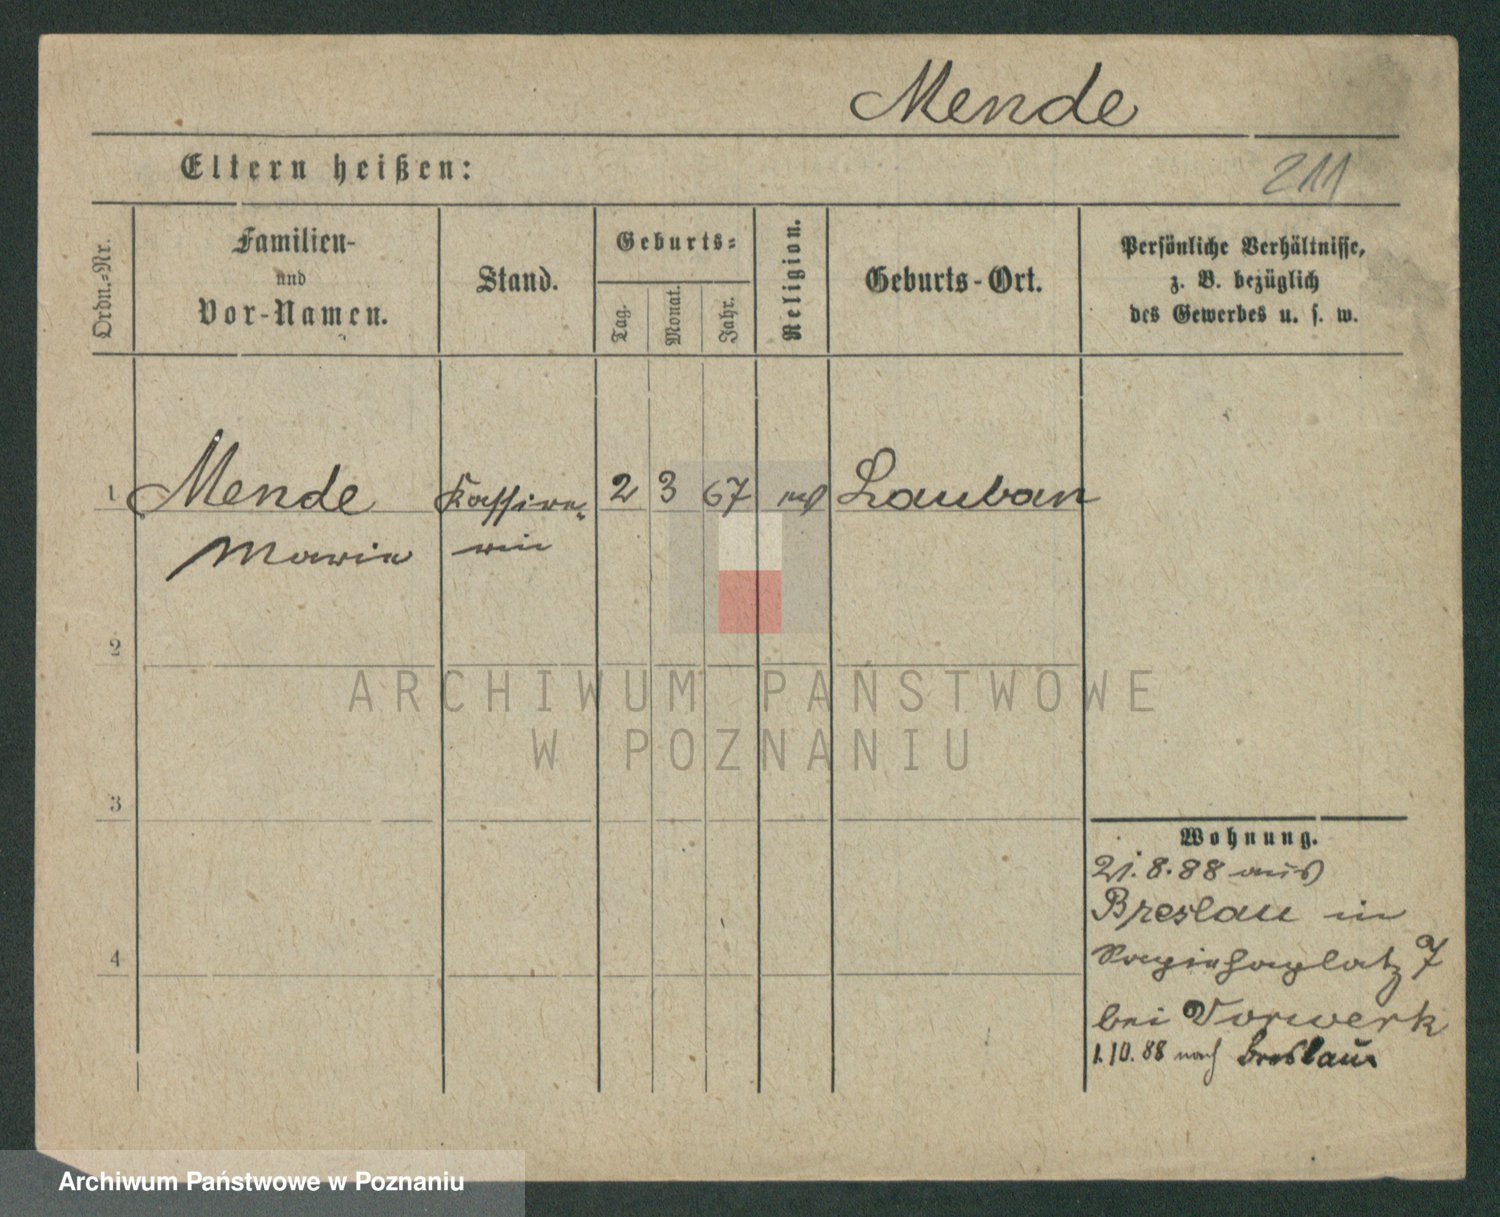 Mende
Eltern heißen:
211
Ordn.-Nr.
Familien-
und
Vor-Namen.
Stand.
Geburts-
Tag.
Monat.
Jahr.
Religion.
Geburts-Ort.
Persönliche Verhältnisse,
z. B. bezüglich
des Gewerbes u. s. w.
1 Mende Kassire- 2 3 67 Lauban
Marie rin
2
3
4
ARCHIWUM PAŃSTWOWE
W POZNANIU
Wohnung.
21.8.88 aus
Breslau in
Sapiehaplatz 7
bei Vorwerk
1.10.88 nach Breslau
Archiwum Państwowe w Poznaniu